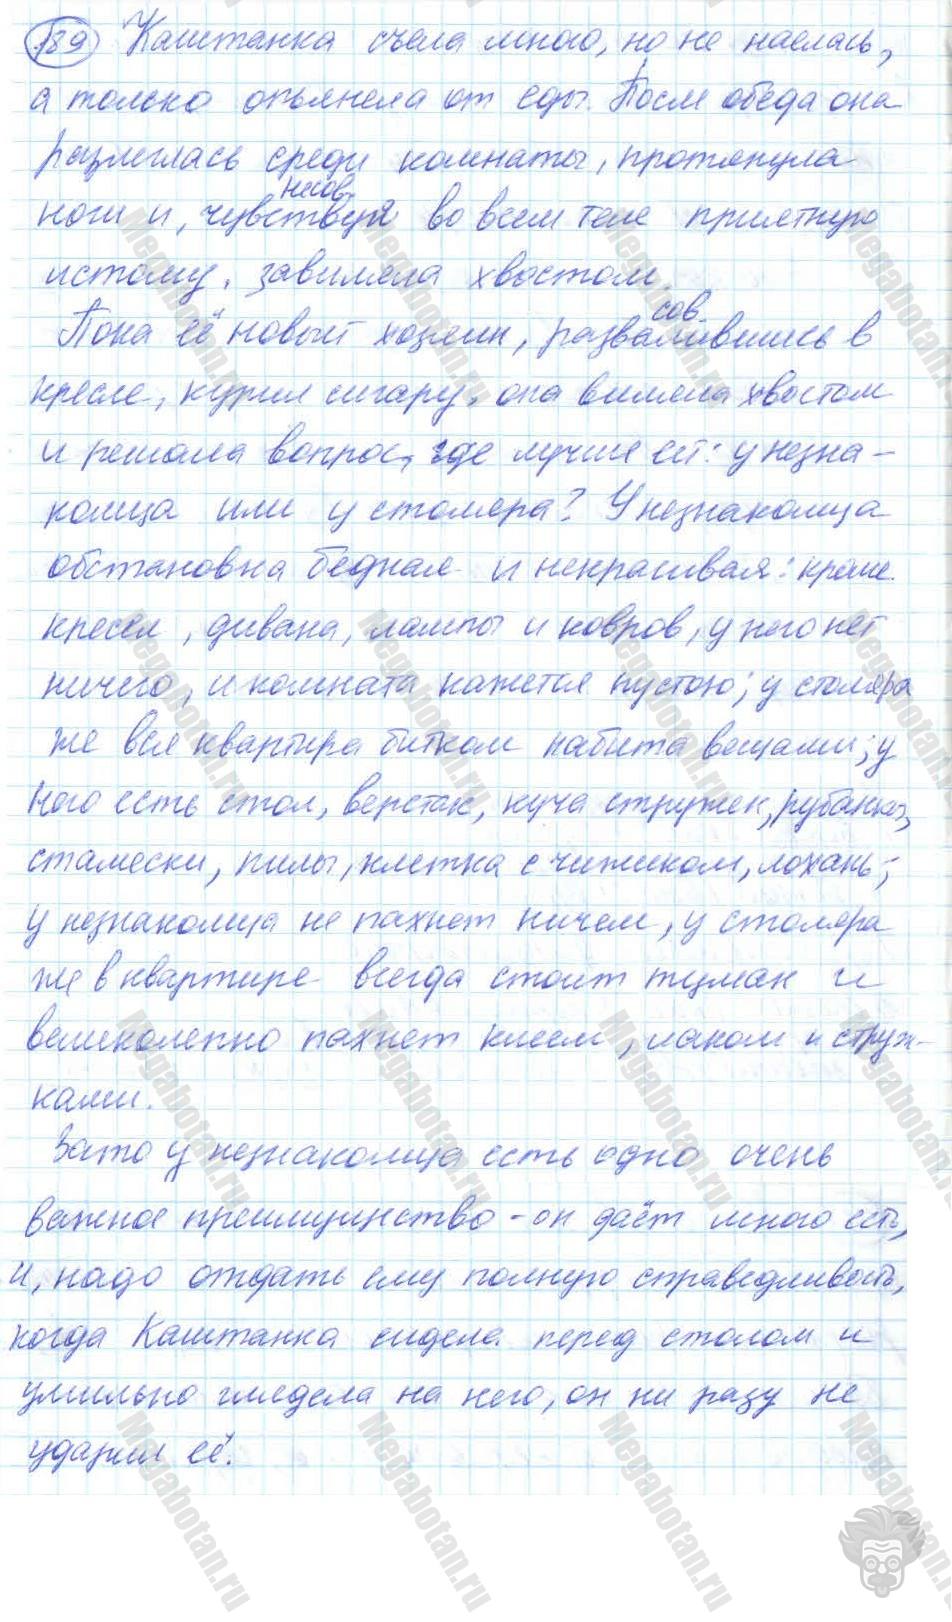 189 Каштанка съела много, но не наелась,
а только опьянела от еды. После обеда она
разлеглась среди комнаты, протянула
несов.
ноги и, чувствуя во всем теле приятную
истому, завиляла хвостом.
сов.
Пока её новый хозяин, развалившись в
кресле, курил сигару, она виляла хвостом
и решала вопрос, где лучше ей: у незна-
комца или у столяра? У незнакомца
обстановка бедная и некрасивая: кроме
кресел, дивана, лампы и ковров, у него нет
ничего, и комната кажется пустою; у столяра
же вся квартира битком набита вещами; у
него есть стол, верстак, куча стружек, рубанки,
стамески, пилы, клетка с чижиком, лохань;
у незнакомца не пахнет ничем, у столяра
же в квартире всегда стоит туман и
великолепно пахнет клеем, лаком и струж-
ками.
Зато у незнакомца есть одно очень
важное преимущество - он даёт много есть,
и, надо отдать ему полную справедливость,
когда Каштанка сидела перед столом и
умильно глядела на него, он ни разу не
ударил её.
Megabotan.ru